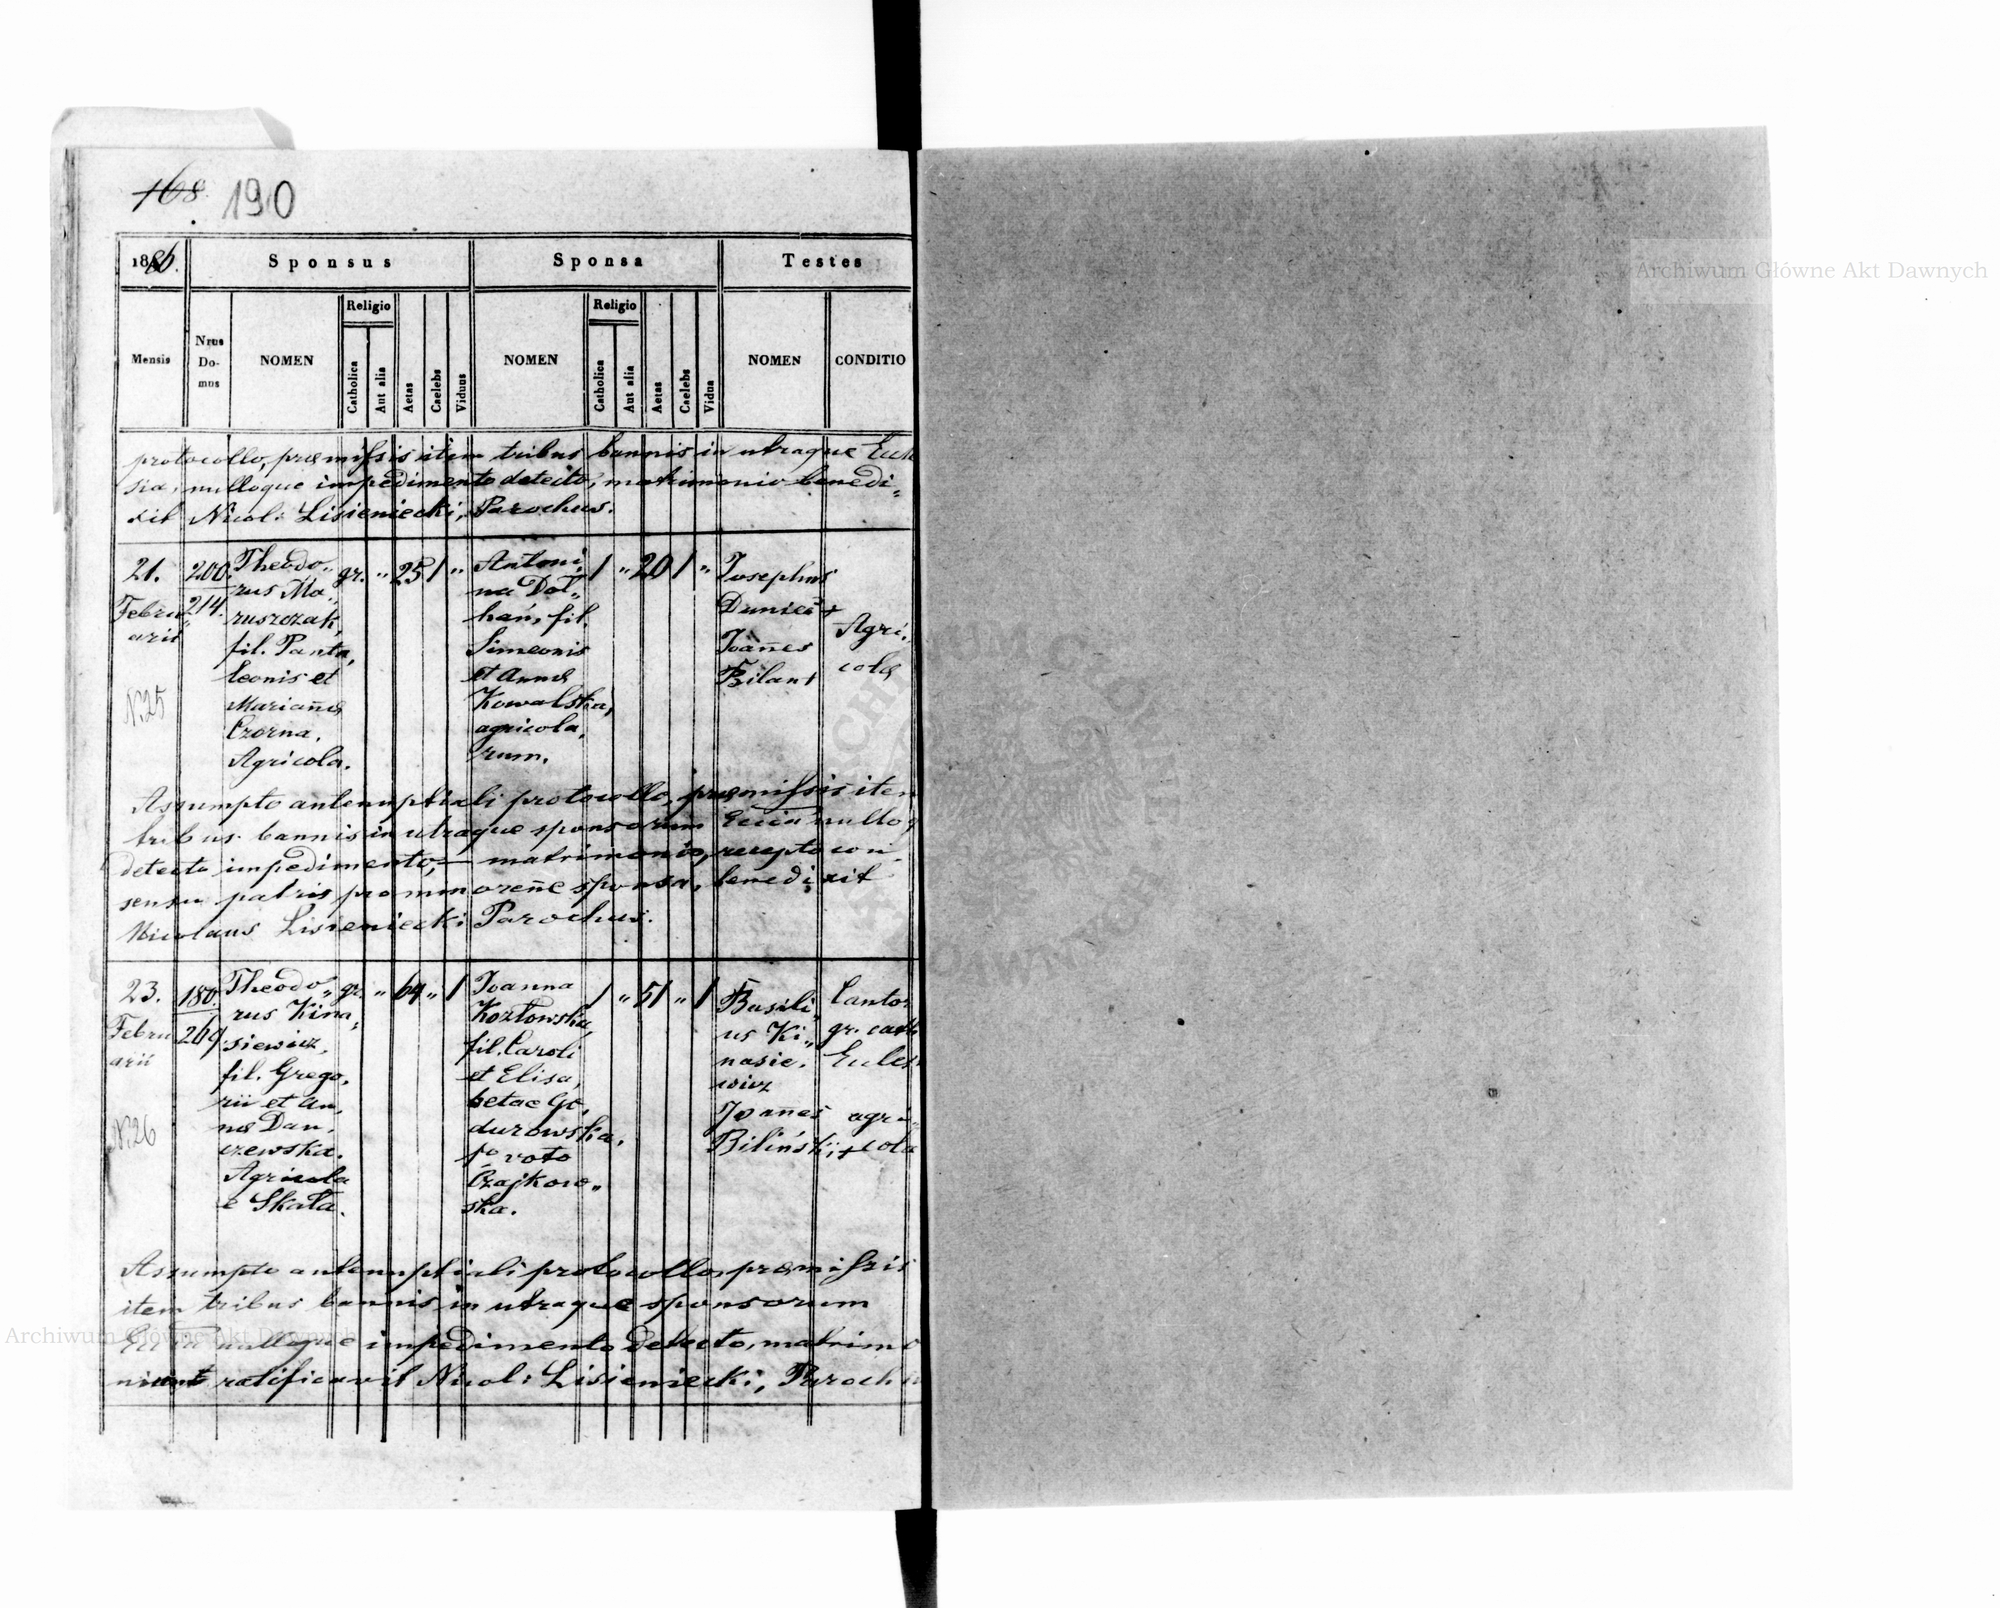 168. 190
1886.
Sponsus
Sponsa
Testes
Mensis
Nrus
Do-
mus
NOMEN
Religio
Catholica
Aut alia
Aetas
Caelebs
Viduus
NOMEN
Religio
Catholica
Aut alia
Aetas
Caelebs
Vidua
NOMEN
CONDITIO
protocollo, præmissis item tribus bannis in utraque
sia, nulloque impedimento detecto, matrimonio benedi„
xit Nicol: Lisieniecki, Parochus.
21.
Febru„
arii
N.25
200.
214.
Theodo„
rus Ma„
rusrozak,
fil. Panta„
leonis et
Mariañæ
Czorna,
Agricola.
gr. „ 25 1 „
Antoni„
na Doł„
hań, fil.
Simeonis
et Annæ
Kowalska,
agricola„
rum.
1 „ 20 1 „
Josephus
Dunieć +
Joañes
Bilan +
Agri„
colæ
Assumpto antenuptiali protocollo, præmissis item
tribus bannis in utraque sponsorum Eccia nulloq
detecto impedimento, — matrimonio, recepto con„
sensu patris pro minoreñe sponsa, benedixit
Nicolaus Lisieniecki Parochus.
23.
Febru
arii
N.26
180.
269.
Theodo„
rus Kina„
siewicz,
fil. Grego„
rii et An„
næ Dan„
czewska.
Agricola
e Skała.
gr. „ 64 „ 1
Joanna
Kozłowska,
fil. Caroli
et Elisa„
betae Go„
durowska,
1º voto
Czajkow„
ska.
1 „ 51 „ 1
Basili„
us Ki„
nasie„
wicz
Joañes
Biliński, +
Cantor
gr. cath
Eccles
agri„
cola
Assumpto antenuptiali protocollo, præmissis
item tribus bannis in utraque sponsorum
Eccia nulloque impedimento detecto, matrimo
nium ratificavit Nicol: Lisieniecki, Paroch
Archiwum Główne Akt Dawnych
Archiwum Główne Akt Dawnych